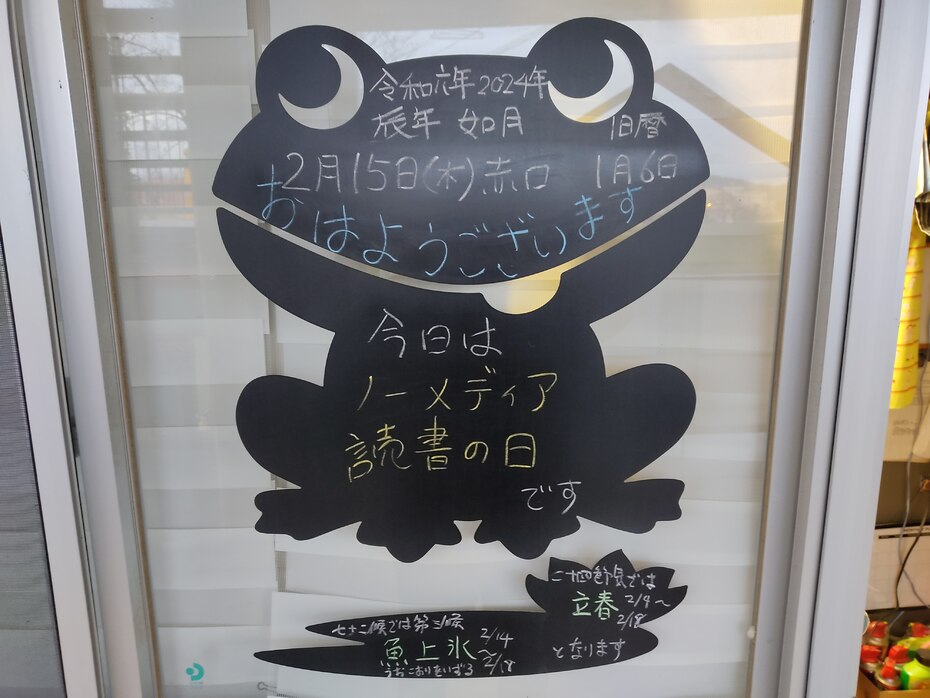 令和六年2024年
辰年 如月 旧暦
2月15日(木)赤口 1月6日
おはようございます
今日は
ノーメディア
読書の日
です
二十四節気では
立春 2/4〜
2/18
となります
七十二候では第三候
魚上氷 2/14
〜2/18
うおこおりをいずる